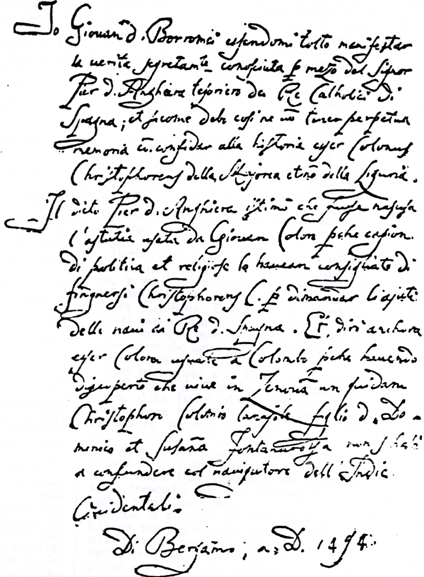 Io Giovan d. Borromei essendomi tolto manifestar
la verita segretamte conosciuta p mezo del Signor
Pier d. Anghiera tesoriero dei Re Catholici di
Spagna; et siccome debo far perpetua
memoria confidar alla historia esser Colonus
Christophorens della Majorca et no della Liguria.
Il dito Pier d. Anghiera istimò che
l'astutia usata da Giovan Colon pche cagion
di politia et religiose lo haveam consigliato di
fingnersi Christophorens C. p dimandar li ajuti
delle navi ai Re d. Spagna. Et, dirò anchora
esser Colom a Colombo pche havendo
discuperto che vive in Jenova un quidam
Christophom Colonio Canajosa figlio d. Do
menico et Susana Fontanarossa non s habi
a confundere col navigatore dell Indie
Occidentali.
Di Bergamo; a. D. 1494.